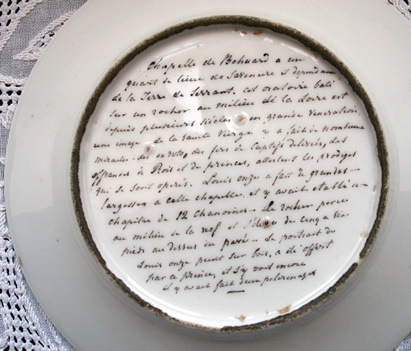 Chapelle de Behuard a un
quart de lieue de Savenière et dependant
de la Terre de Serrant, cet oratoire bati
sur un rocher au milieu de la Loire est
depuis plusieurs siècles en grande veneration
une image de la sainte Vierge y a fait de nombreux
miracles. des des fers de Captifs delivrés, des
offrandes de Rois et de princes, attestent les prodiges
qui se sont operés. Louis onze a fait de grandes
largesses a cette chapelle, et y avait etabli un
chapitre de 12 Chanoines. Le rocher perce
au milieu de la nef et s'éleve de cinq a six
pieds au dessus du pavé. Le portrait de
Louis onze peint sur bois, a été offert
par ce prince, et s'y voit encore
il y avait fait deux pelerinages